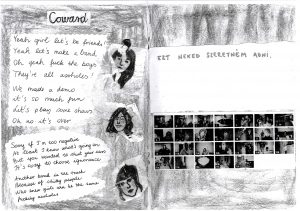 Coward
Yeah girl let's be friends!
Yeah let's make a band
Oh yeah fuck the boys
They're all assholes!
We made a demo
it's so much fun
Let's play some shows
Oh no it's over
Sorry if I'm too negative
At least I know what's going on
But you wanted to shut your eyes
It's easy to choose ignorance
Another band in the trash
Because of shitty people
Who knew girls can be the same
fucking assholes
EZT NEKED SZERETNÉM ADNI.